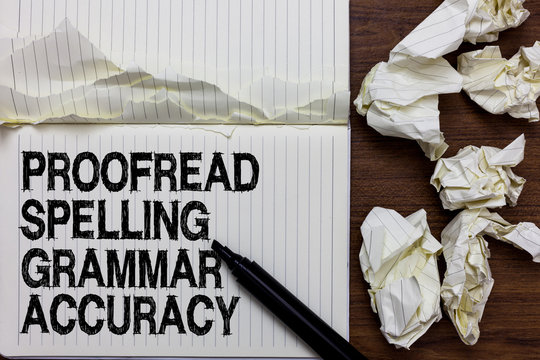 PROOFREAD
SPELLING
GRAMMAR
ACCURACY